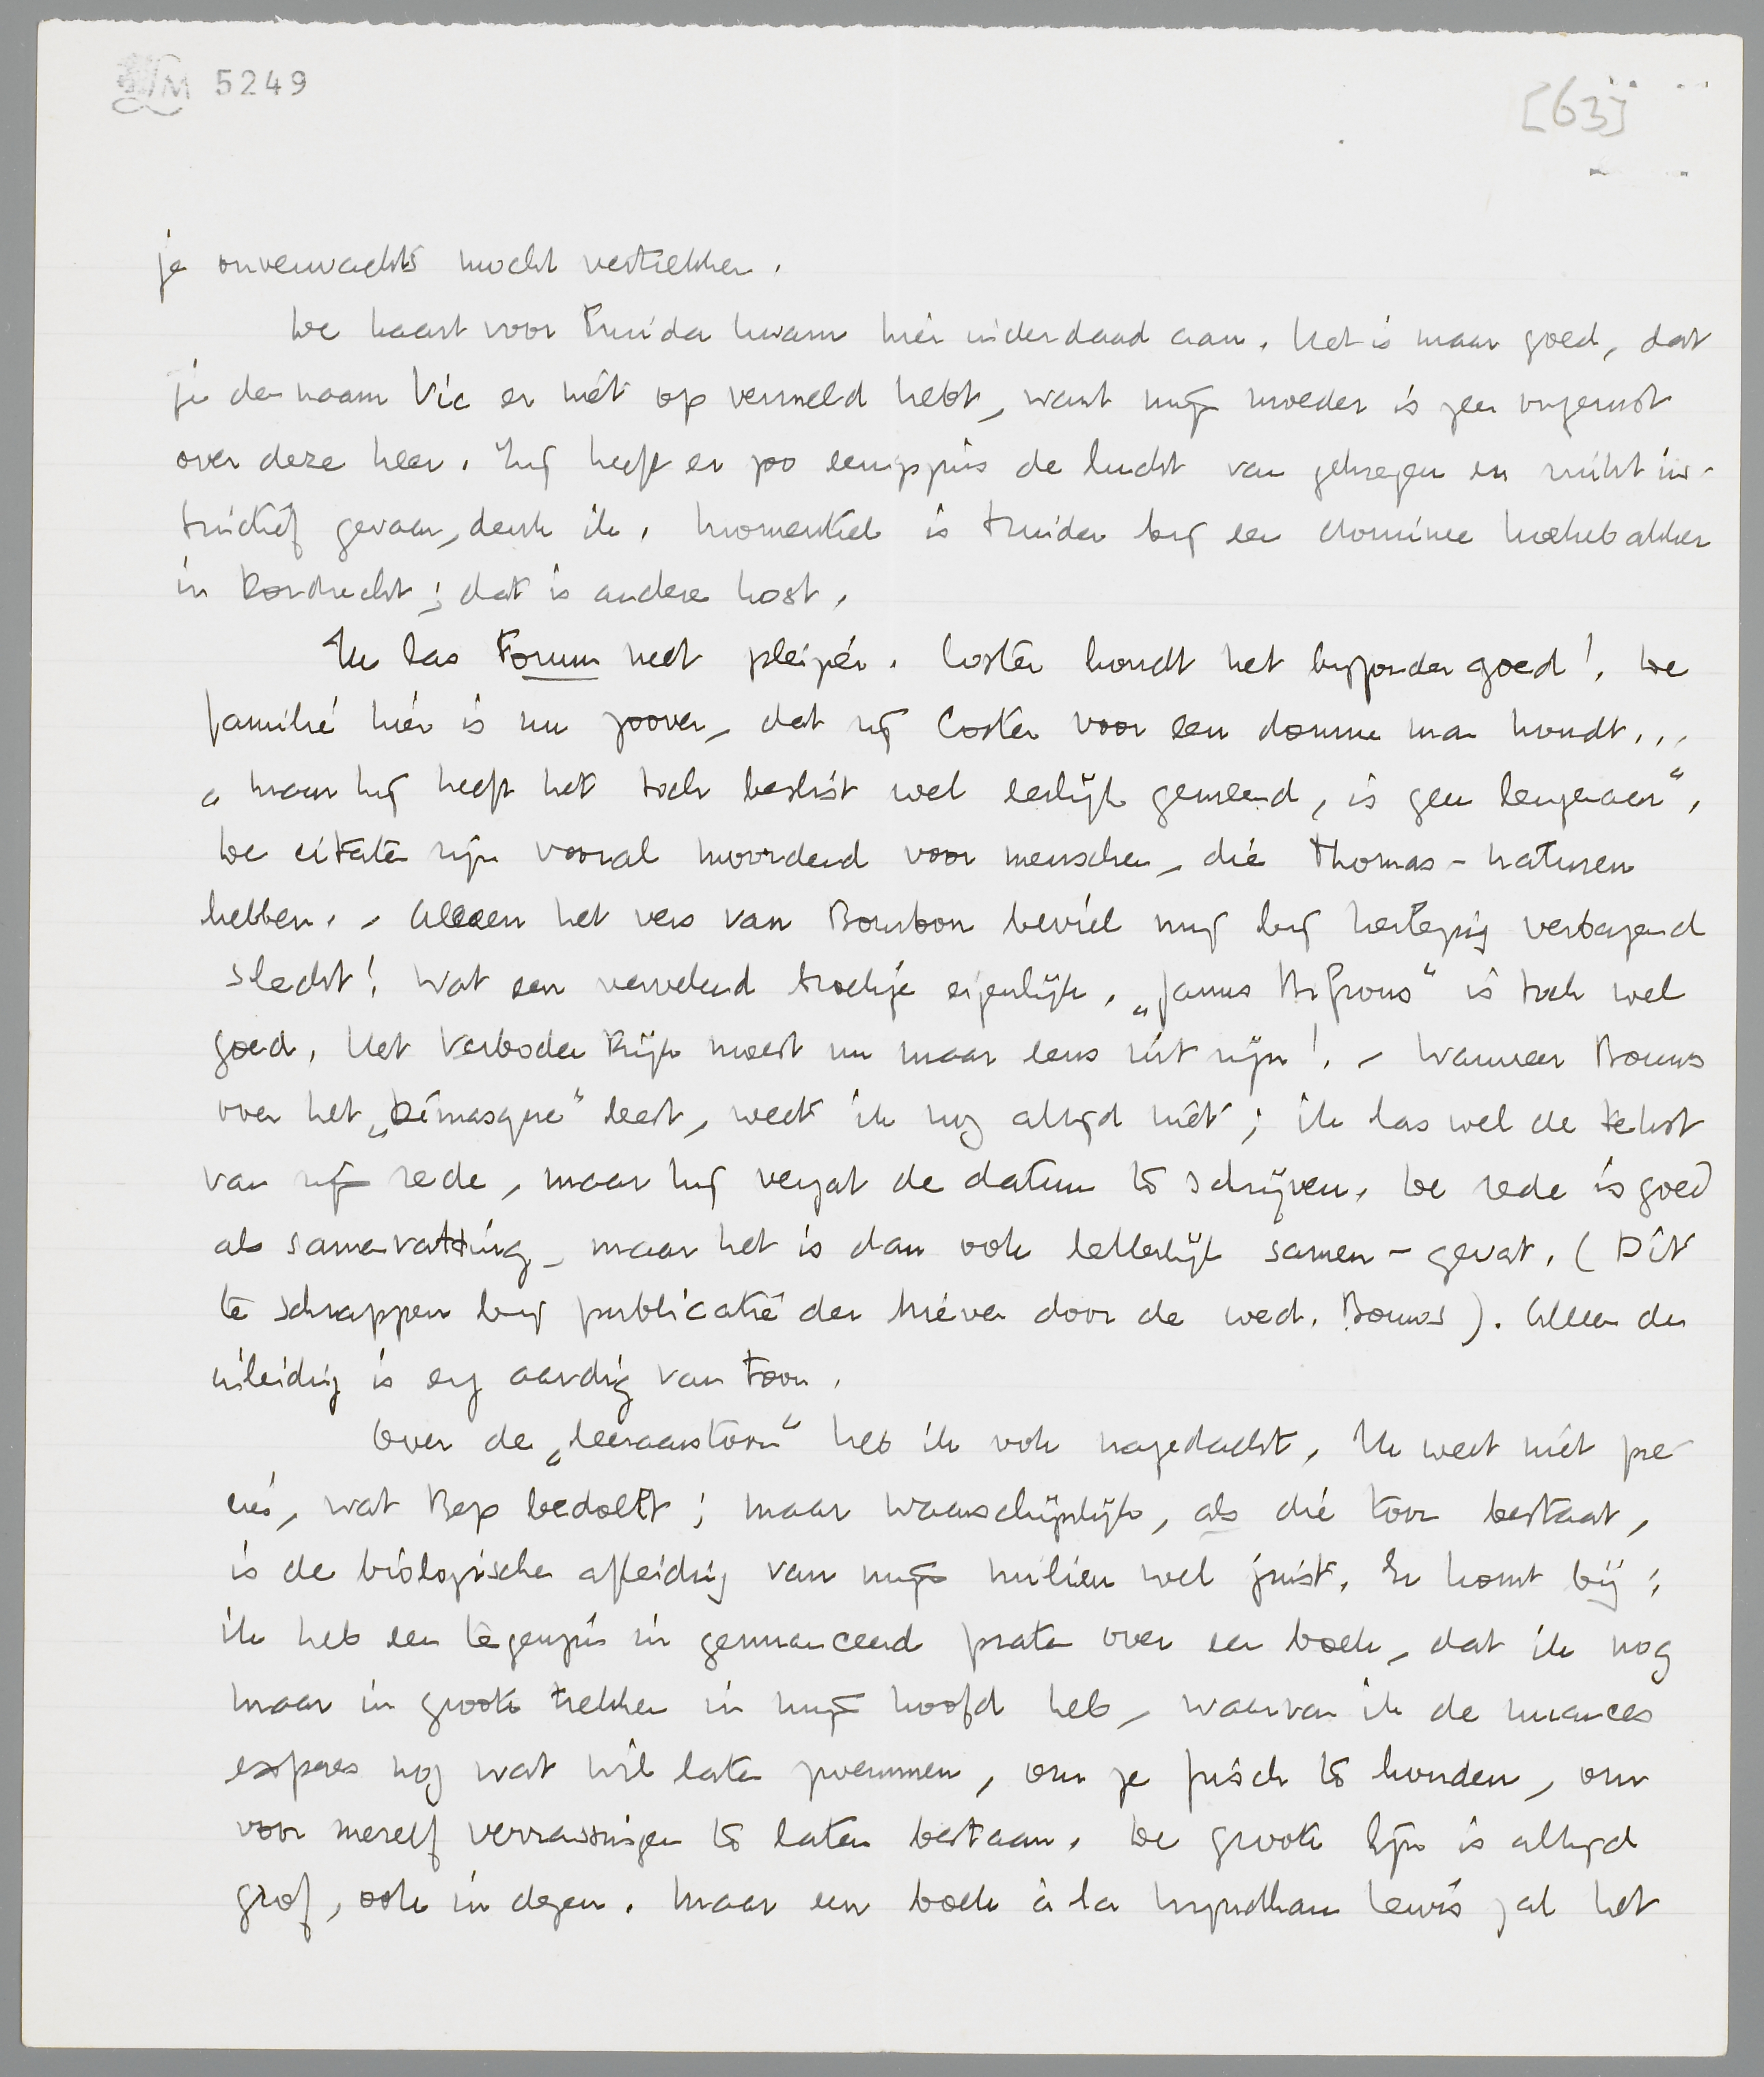 LM 5249
[63]
je onverwachts mocht vertrekken.
De kaart voor Truida kwam hier inderdaad aan. Het is maar goed, dat
je den naam Vic er niet op vermeld hebt, want mijn moeder is zeer ongerust
over deze heer. Zij heeft er zoo eenigszins de lucht van gekregen en ruikt in-
stinctief gevaar, denk ik. Momenteel is Truida bij een dominee Koekebakker
in Dordrecht; dat is andere kost.
Ik las Forum met pleizier. Coster houdt het bijzonder goed! De
familie hier is nu zoover, dat zij Coster voor een domme man houdt...
„maar hij heeft het toch beslist wel eerlijk gemeend, is geen leugenaar".
De citaten zijn vooral moordend voor menschen, die Thomas-naturen
hebben. - Alleen het vers van Bourbon beviel mij bij herlezing verbazend
slecht! Wat een vervelend stoekje eigenlijk. „Janus Bifrons" is toch wel
goed. Het Verboden Rijk moest nu maar eens uit zijn! - Wanneer Bouws
over het „Démasqué" leest, weet ik nog altijd niet; ik las wel de tekst
van zijn rede, maar hij vergat de datum te schrijven. De rede is goed
als samenvatting, maar het is dan ook letterlijk samen-gevat. (Dit
te schrappen bij publicatie der brieven door de wed. Bouws). Alleen de
inleiding is erg aardig van toon.
Over de „leeraarstoon" heb ik ook nagedacht. Ik weet niet pre-
cies, wat Bep bedoelt; maar waarschijnlijk, als die toon bestaat,
is de biologische afleiding van mijn milieu wel juist. Er komt bij:
ik heb een tegenzin in genuanceerd praten over een boek, dat ik nog
maar in groote trekken in mijn hoofd heb, waarvan ik de nuances
expres nog wat wil laten zwemmen, om ze frisch te houden, om
voor mezelf verrassingen te laten bestaan. De groote lijn is altijd
grof, ook in dezen. Maar een boek à la Wyndham Lewis zal het